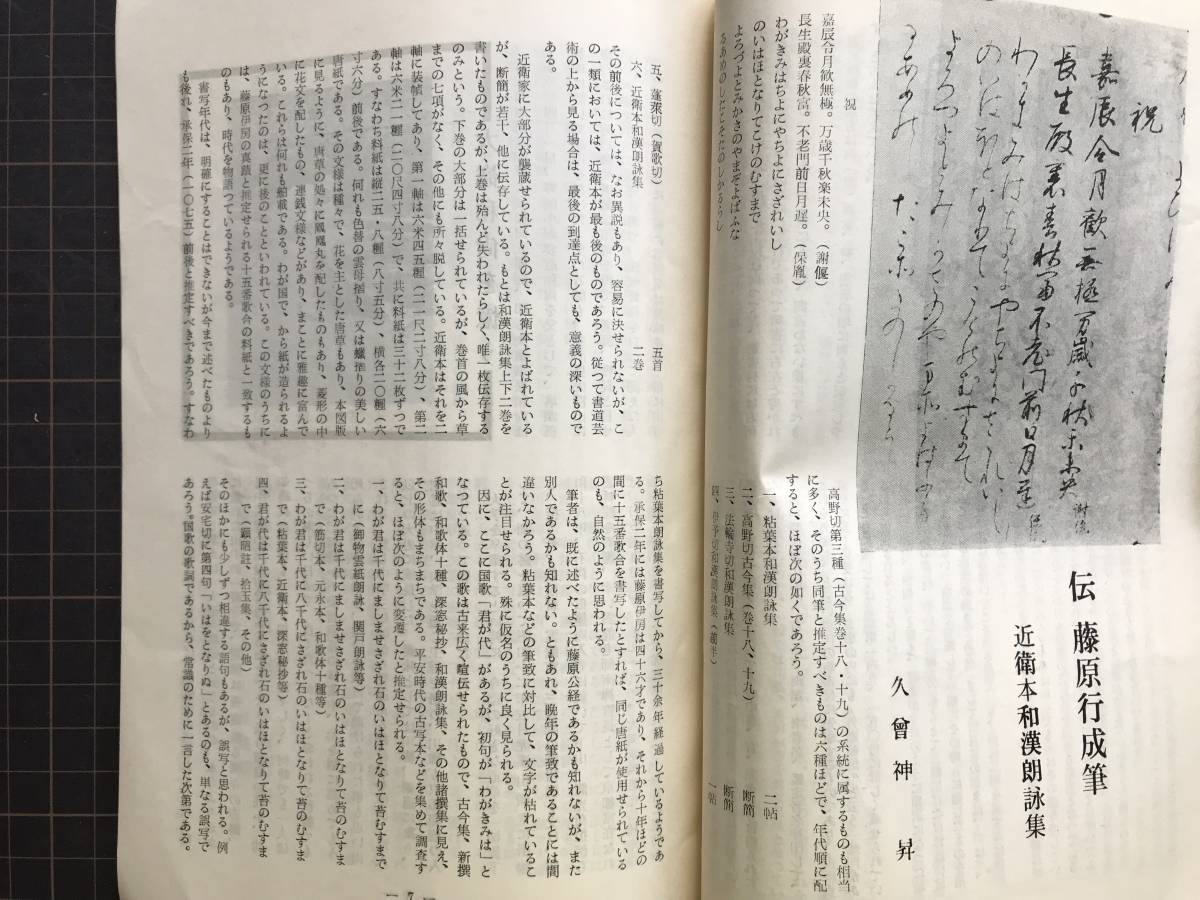 祝
嘉辰令月歓無極万歳千秋楽未央 謝偃
長生殿裏春秋富不老門前日月遅
伝 藤原行成筆
近衛本和漢朗詠集
久曾神 昇
祝
嘉辰令月歓無極。万歳千秋楽未央。(謝偃)
長生殿裏春秋富。不老門前日月遅。(保胤)
わがきみはちよにやちよにさざれいし
のいはほとなりてこけのむすまで
よろづよとみかさのやまぞよばふな
るあめのしたこそたのしかるらし
高野切第三種(古今集巻十八・十九)の系統に属するものも相当
に多く、そのうち同筆と推定すべきものは六種ほどで、年代順に配
すると、ほぼ次の如くであろう。
一、粘葉本和漢朗詠集 二帖
二、高野切古今集(巻十八、十九) 断簡
三、法輪寺切和漢朗詠集 断簡
四、伊予切和漢朗詠集(前半) 一帖
五、蓬莱切(賀歌切) 五首
六、近衛本和漢朗詠集 二巻
その前後については、なお異説もあり、容易に決せられないが、こ
の一類においては、近衛本が最も後のものであろう。従つて書道芸
術の上から見る場合は、最後の到達点としても、意義の深いもので
ある。
近衛家に大部分が襲蔵せられているので、近衛本とよばれている
が、断簡が若干、他に伝存している。もとは和漢朗詠集上下二巻を
書いたものであるが、上巻は殆んど失われたらしく、唯一枚伝存する
のみという。下巻の大部分は一括せられているが、巻首の風から草
までの七項がなく、その他にも所々脱している。近衛本はそれを二
軸に装幀してあり、第一軸は六米四五糎(二一尺二寸八分)、第二
軸は六米二一糎(二〇尺四寸八分)で、共に料紙は三十二枚ずつで
ある。すなわち料紙は縦二五・八糎(八寸五分)、横各二〇糎(六
寸六分)前後である。何れも色替の雲母摺り、又は蠟摺りの美しい
唐紙である。その文様は種々で、花を主とした唐草もあり、本図版
に見るように、唐草の処々に鳳凰丸を配したものもあり、菱形の中
に花文を配したもの、連銭文様などがあり、まことに雅趣に富んで
いる。これらは何れも舶載である。わが国で、から紙が造られるよ
うになつたのは、更に後のことといわれている。この文様のうちに
は、藤原伊房の真蹟と推定せられる十五番歌合の料紙と一致するも
のもあり、時代を物語つているようである。
書写年代は、明確にすることはできないが今まで述べたものより
も後れ、承保二年(一〇七五)前後と推定すべきであろう。すなわ
ち粘葉本朗詠集を書写してから、三十余年経過しているようであ
る。承保二年には藤原伊房は四十六才であり、それから十年ほどの
間に十五番歌合を書写したとすれば、同じ唐紙が使用せられている
のも、自然のように思われる。
筆者は、既に述べたように藤原公経であるかも知れないが、また
別人であるかも知れない。ともあれ、晩年の筆致であることには間
違いなかろう。粘葉本などの筆致に対比して、文字が枯れているこ
とが注目せられる。殊に仮名のうちに良く見られる。
因に、ここに国歌「君が代」があるが、初句が「わがきみは」と
なつている。この歌は古来広く喧伝せられたもので、古今集、新撰
和歌、和歌体十種、深窓秘抄、和漢朗詠集、その他諸撰集に見え、
その形体もまちまちである。平安時代の古写本などを集めて調査す
ると、ほぼ次のように変遷したと推定せられる。
一、わが君は千代にましませさざれ石のいはほとなりて苔のむすまで
に(御物雲紙朗詠、関戸朗詠等)
二、わが君は千代にましませさざれ石のいはほとなりて苔のむすま
で(筋切本、元永本、和歌体十種等)
三、わが君は千代に八千代にさざれ石のいはほとなりて苔のむすま
で(粘葉本、近衛本、深窓秘抄等)
四、君が代は千代に八千代にさざれ石のいはほとなりて苔のむすま
で(顕昭註、拾玉集、その他)
そのほかにも少しずつ相違する語句もあるが、誤写と思われる。例
えば安宅切に第四句「いはをとなりぬ」とあるのも、単なる誤写で
あろう。国歌の歌詞であるから、常識のために一言した次第である。
— 7 —